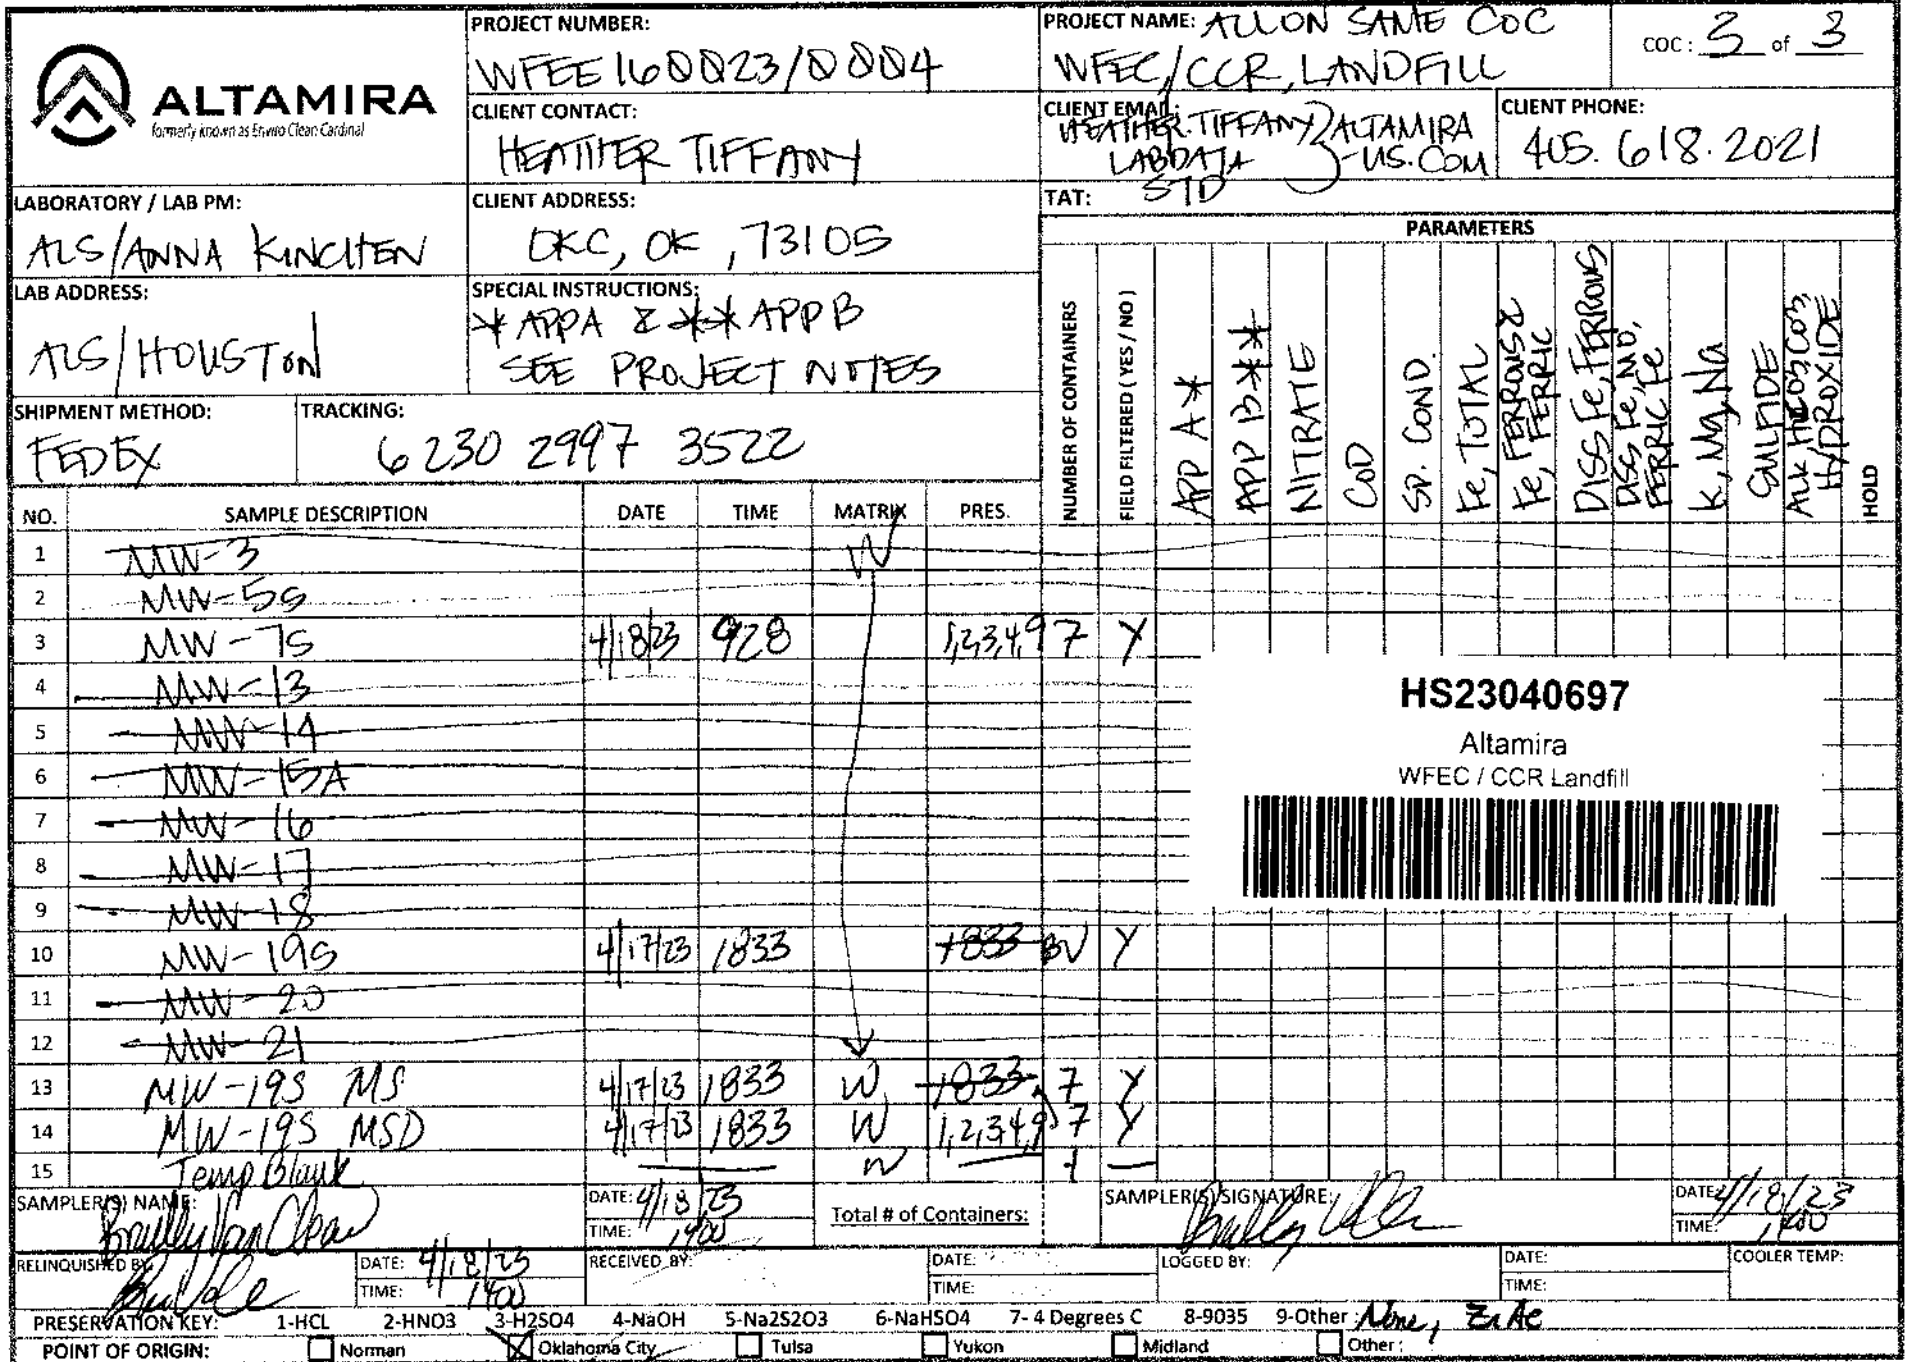 ALTAMIRA
formerly known as Enviro Clean Cardinal
PROJECT NUMBER:
WFEE160023/0004
PROJECT NAME: ALL ON SAME COC
WFEC/CCR, LANDFILL
COC: 3 of 3
CLIENT CONTACT:
HEATHER TIFFANY
CLIENT EMAIL:
HEATHER.TIFFANY } ALTAMIRA
LABDATA -US.COM
CLIENT PHONE:
405.618.2021
LABORATORY / LAB PM:
ALS/ANNA KINCHEN
CLIENT ADDRESS:
OKC, OK, 73105
TAT: STD
LAB ADDRESS:
ALS/HOUSTON
SPECIAL INSTRUCTIONS:
*APPA & **APPB
SEE PROJECT NOTES
SHIPMENT METHOD:
FEDEX
TRACKING:
6230 2997 3522
PARAMETERS
NUMBER OF CONTAINERS
FIELD FILTERED ( YES / NO )
APP A*
APP B**
NITRATE
COD
SP. COND.
Fe, TOTAL
Fe, FERROUS &
Fe, FERRIC
DISS Fe, FERROUS
DISS Fe, NO,
FERRIC Fe
K, Mg, Na
SULFIDE
Alk HCO3, CO3,
HYDROXIDE
HOLD
NO. SAMPLE DESCRIPTION DATE TIME MATRIX PRES.
1 MW-3 W
2 MW-5S
3 MW-7S 4/18/23 928 1,2,3,4,9 7 Y
4 MW-13
5 MW-14
6 MW-15A
7 MW-16
8 MW-17
9 MW-18
10 MW-19S 4/17/23 1833 1833 BV Y
11 MW-20
12 MW-21
13 MW-19S MS 4/17/23 1833 W 1833 7 Y
14 MW-19S MSD 4/17/23 1833 W 1,2,3,4,9 7 Y
15 Temp Blank — W — 1 —
HS23040697
Altamira
WFEC / CCR Landfill
SAMPLER(S) NAME:
DATE: 4/18/23
TIME: 1400
Total # of Containers:
SAMPLER(S) SIGNATURE:
DATE: 4/18/23
TIME: 1400
RELINQUISHED BY:
DATE: 4/18/23
TIME: 1400
RECEIVED BY:
DATE:
TIME:
LOGGED BY:
DATE:
TIME:
COOLER TEMP:
PRESERVATION KEY: 1-HCL 2-HNO3 3-H2SO4 4-NaOH 5-Na2S2O3 6-NaHSO4 7- 4 Degrees C 8-9035 9-Other: None, ZnAc
POINT OF ORIGIN: Norman Oklahoma City Tulsa Yukon Midland Other: